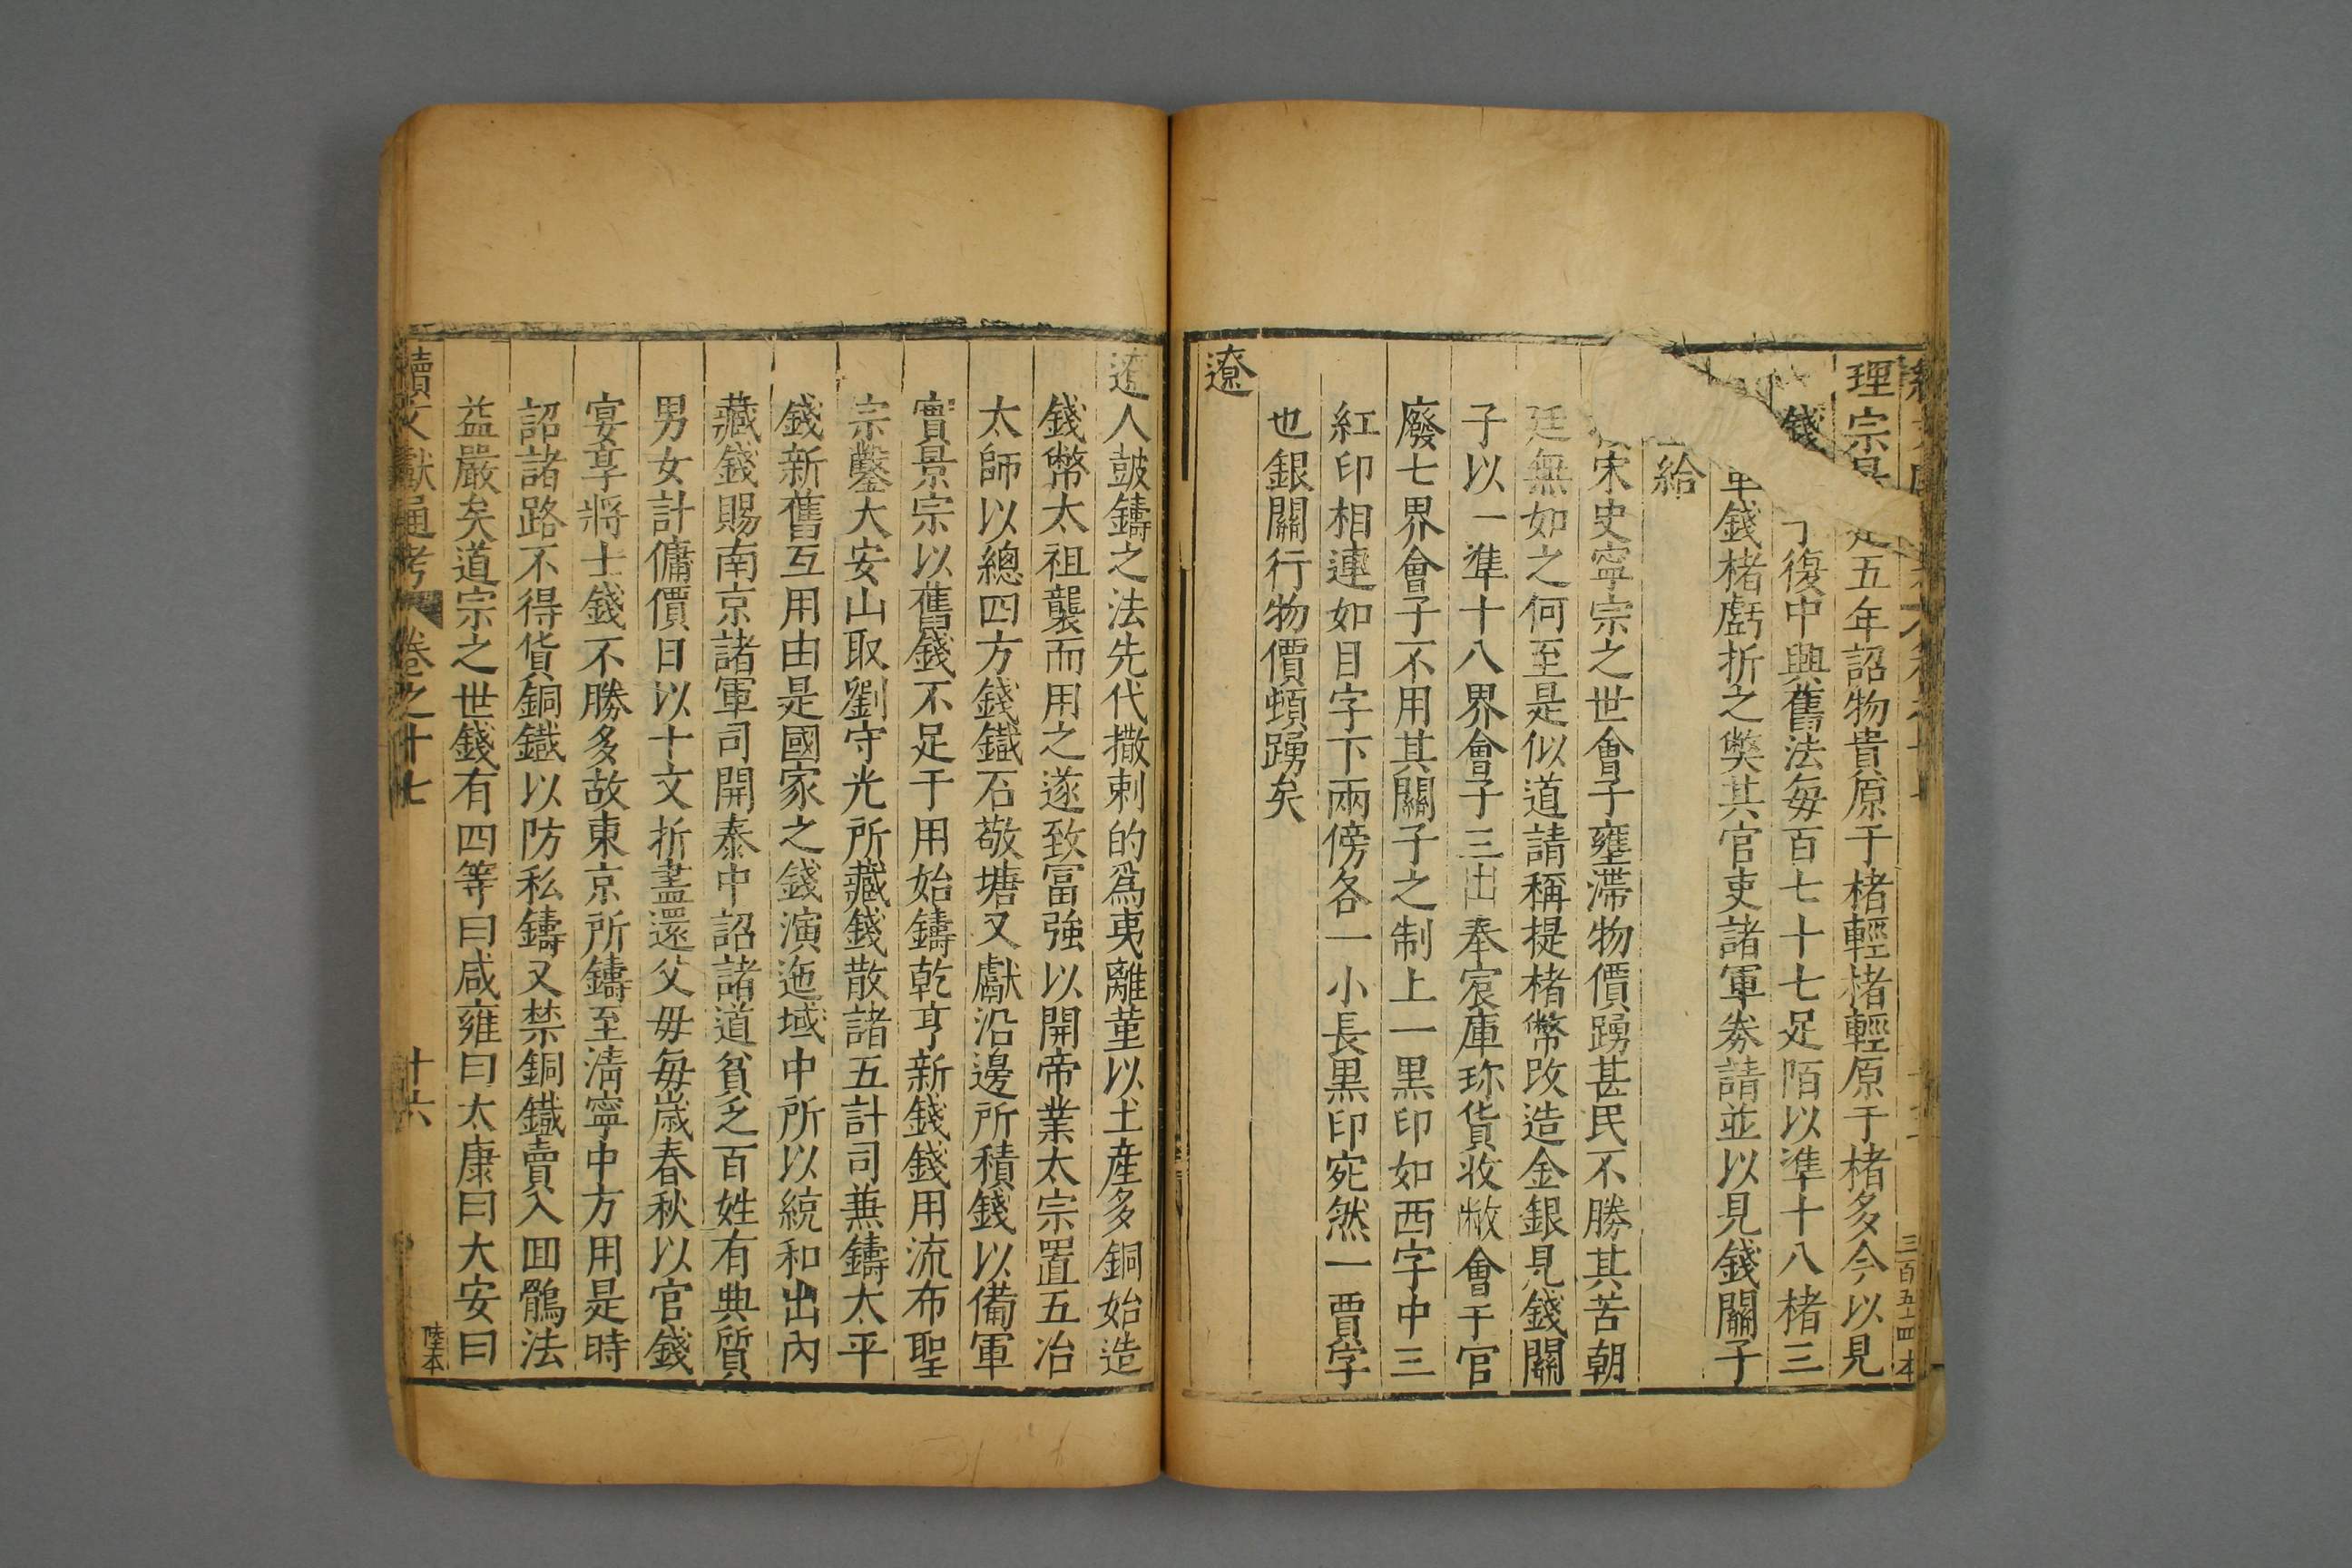 理宗景定五年詔物貴原于楮輕楮輕原于楮多今以見
錢復中興舊法每百七十七足陌以準十八楮三
錢楮虧折之獘其官吏諸軍券請並以見錢關子
給
宋史寧宗之世會子壅滯物價踴甚民不勝其苦朝
廷無如之何至是似道請稱提楮幣改造金銀見錢關
子以一準十八界會子三出奉宸庫珎貨收敝會于官
廢七界會子不用其關子之制上一黑印如西字中三
紅印相連如目字下兩傍各一小長黑印宛然一賈字
也銀關行物價頓踴矣
遼
遼人鼓鑄之法先代撒剌的爲夷離菫以土産多銅始造
錢幣太祖襲而用之遂致冨強以開帝業太宗置五冶
太師以總四方錢鐡石敬塘又獻沿邊所積錢以備軍
實景宗以舊錢不足于用始鑄乾亨新錢錢用流布聖
宗鑿大安山取劉守光所藏錢散諸五計司兼鑄太平
錢新舊互用由是國家之錢演迤域中所以統和出內
藏錢賜南京諸軍司開泰中詔諸道貧乏百姓有典質
男女計傭價日以十文折盡還父母每歲春秋以官錢
宴享將士錢不勝多故東京所鑄至淸寧中方用是時
詔諸路不得貨銅鐡以防私鑄又禁銅鐡賣入回鶻法
益嚴矣道宗之世錢有四等曰咸雍曰太康曰大安曰
續文獻通考 卷之十七 十六 陸本
三百五十四 本